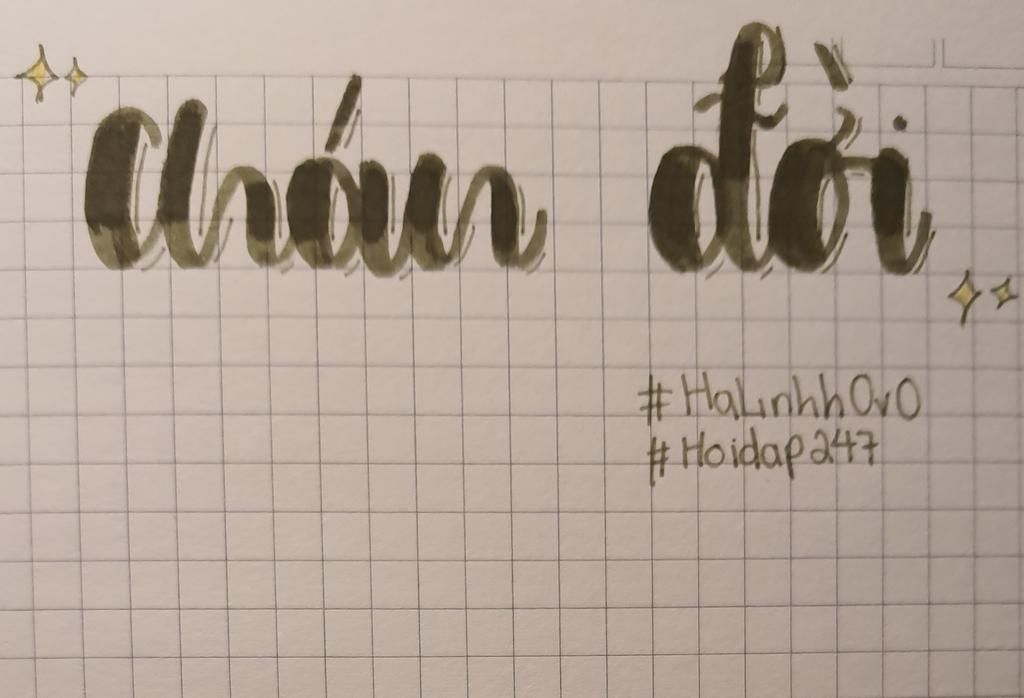 Chán đời
#HaLinhh0v0
#Hoidap247